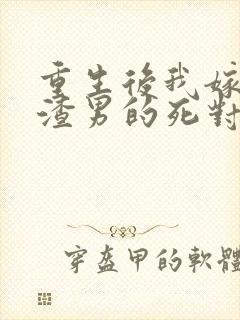 重生後我嫁
渣男的死對
穿盔甲的軟體